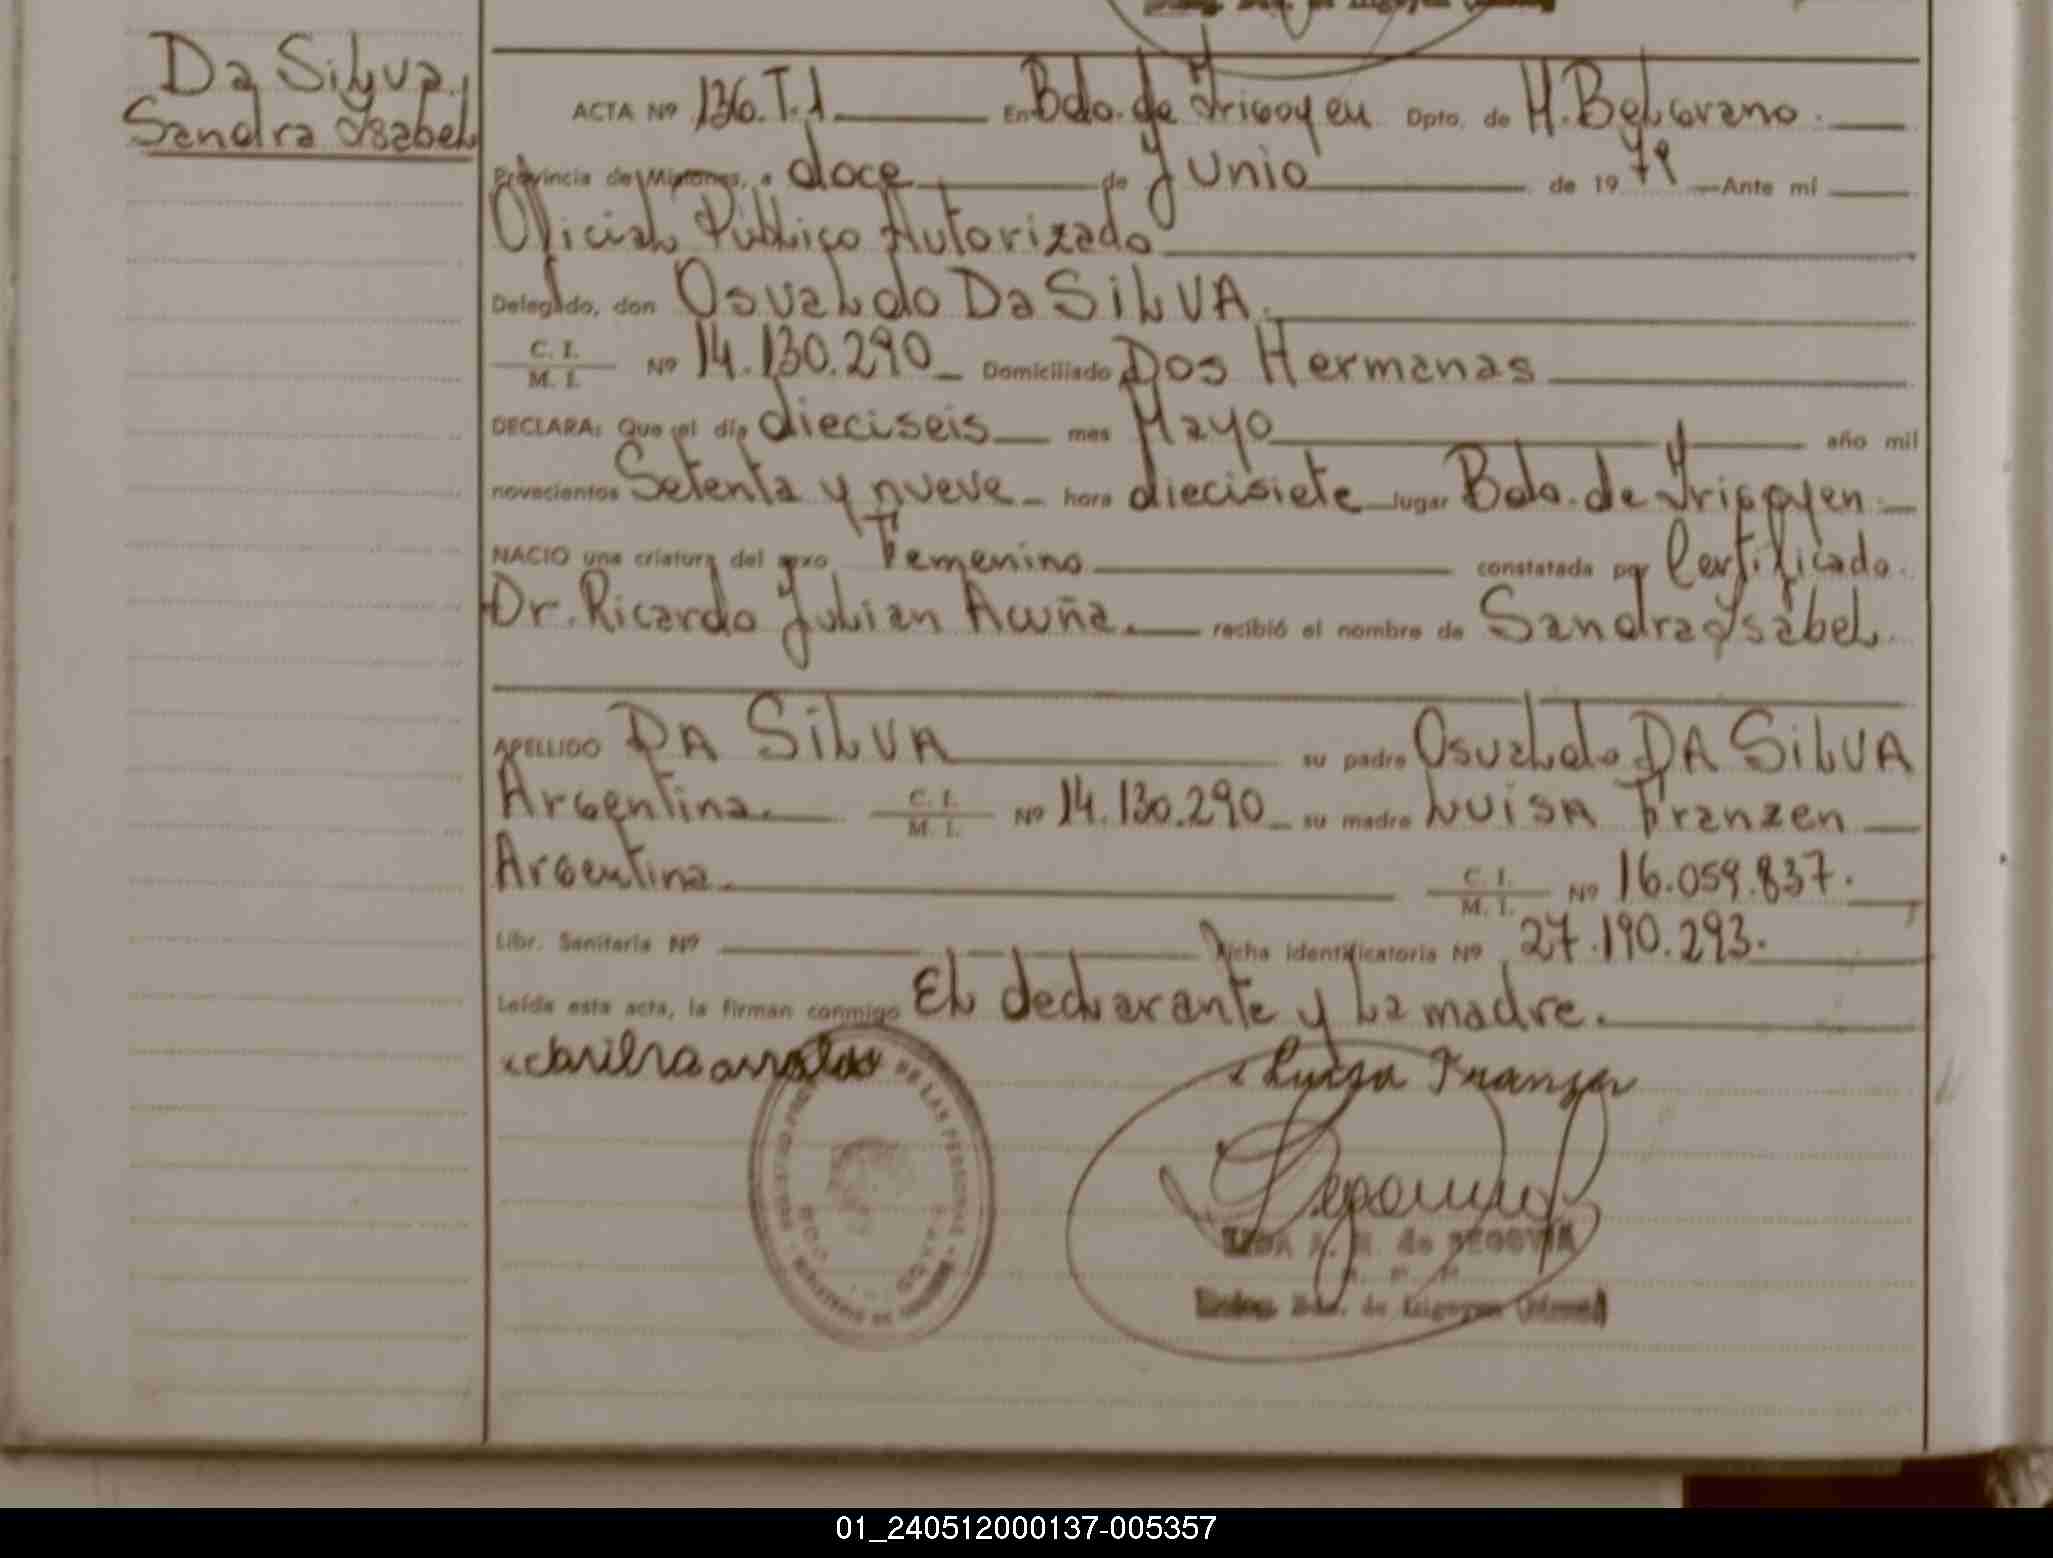 Da Silva,
Sandra Ysabel
ACTA Nº 136.T.1 En Bdo. de Yrigoyen Dpto. de M. Belgrano.
Provincia de Misiones, a doce de Junio de 19 79 Ante mí
Oficial Público Autorizado
Delegado, don Osvaldo Da SiLVA.
C. I.
M. I. Nº 14.130.290 Domiciliado Dos Hermanas
DECLARA: Que el día dieciseis mes Mayo año mil
novecientos Setenta y nueve hora diecisiete lugar Bdo. de Yrigoyen
NACIO una criatura del sexo Femenino constatada por Certificado.
Dr. Ricardo Julian Acuña. recibió el nombre de Sandra Ysabel.
APELLIDO DA SiLVA su padre Osvaldo DA SiLVA
Argentina. C. I.
M. I. Nº 14.130.290 su madre LuiSA Franzen
Argentina. C. I.
M. I. Nº 16.059.837.
Libr. Sanitaria Nº Ficha identificatoria Nº 27.190.293.
Leída esta acta, la firman conmigo El declarante y La madre.
Luiza Franzen
DE LAS PERSONAS
A. de SEGOVIA
Bdo. de Irigoyen
01_240512000137-005357